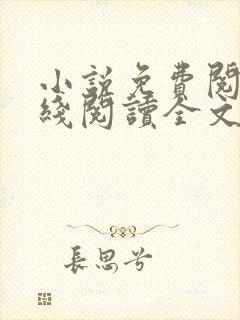 小說免費閱
綫閱讀全文
長思兮